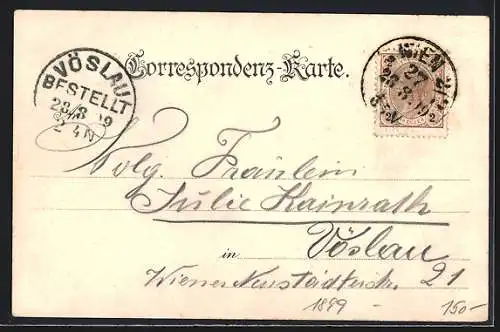 VÖSLAU
BESTELLT
28/8 99
2-4N
Correspondenz-Karte.
WIEN
27
8
2 2
Wolg. Fräulein
Julie Kainrath
in Vöslau
Wiener Neustädterstr. 21
1899
150-